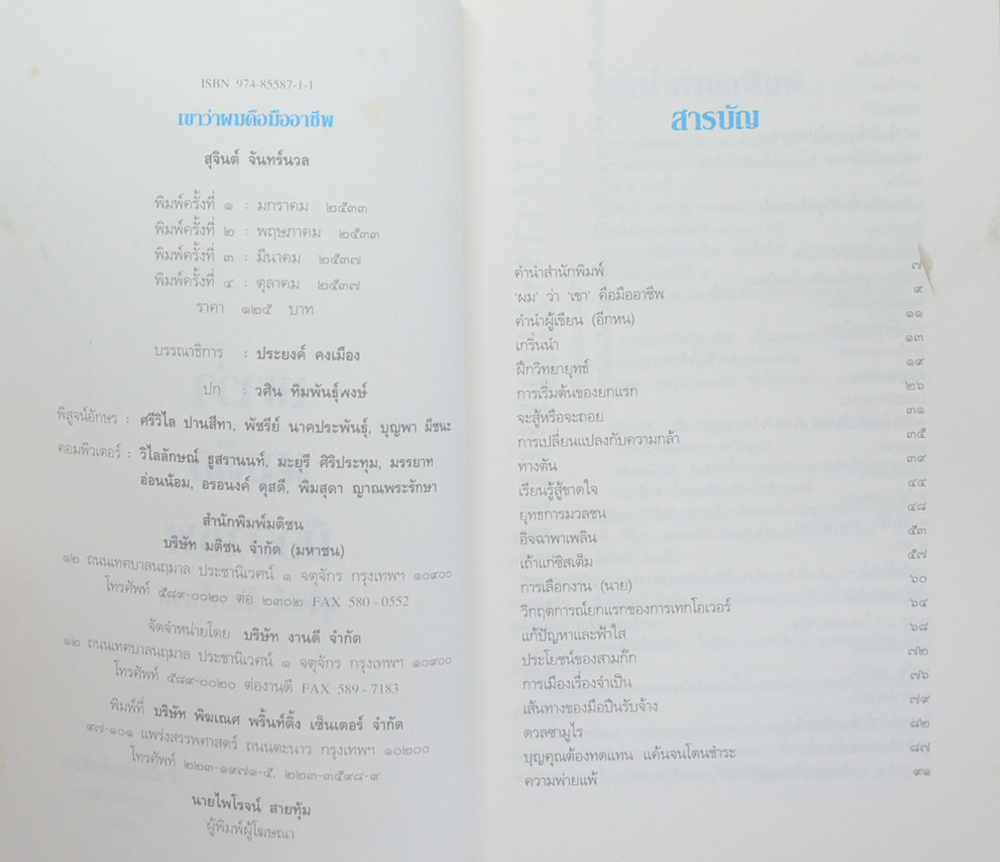 ISBN 974-85587-1-1
เขาว่าผมคือมืออาชีพ
สุจินต์ จันทร์นวล
พิมพ์ครั้งที่ ๑ : มกราคม ๒๕๓๓
พิมพ์ครั้งที่ ๒ : พฤษภาคม ๒๕๓๓
พิมพ์ครั้งที่ ๓ : มีนาคม ๒๕๓๗
พิมพ์ครั้งที่ ๔ : ตุลาคม ๒๕๓๗
ราคา ๑๒๕ บาท
บรรณาธิการ : ประยงค์ คงเมือง
ปก : วศิน ทิมพันธุ์พงษ์
พิสูจน์อักษร : ศรีวิไล ปานสีทา, พัชรีย์ นาคประพันธุ์, บุญพา มีชนะ
คอมพิวเตอร์ : วิไลลักษณ์ ธูสรานนท์, มะยุรี ศิริประทุม, มรรยาท
อ่อนน้อม, อรอนงค์ ดุสดี, พิมสุดา ญาณพระรักษา
สำนักพิมพ์มติชน
บริษัท มติชน จำกัด (มหาชน)
๑๒ ถนนเทศบาลนฤมาล ประชานิเวศน์ ๑ จตุจักร กรุงเทพฯ ๑๐๙๐๐
โทรศัพท์ ๕๘๙-๐๐๒๐ ต่อ ๒๓๐๒ FAX 580-0552
จัดจำหน่ายโดย บริษัท งานดี จำกัด
๑๒ ถนนเทศบาลนฤมาล ประชานิเวศน์ ๑ จตุจักร กรุงเทพฯ ๑๐๙๐๐
โทรศัพท์ ๕๘๙-๐๐๒๐ ต่องานดี FAX 589-7183
พิมพ์ที่ บริษัท พิฆเณศ พริ้นท์ติ้ง เซ็นเตอร์ จำกัด
๙๗-๑๐๑ แพร่งสรรพศาสตร์ ถนนตะนาว กรุงเทพฯ ๑๐๒๐๐
โทรศัพท์ ๒๒๓-๑๙๗๑-๕, ๒๒๓-๓๕๙๘-๙
นายไพโรจน์ สายทุ้ม
ผู้พิมพ์ผู้โฆษณา
สารบัญ
คำนำสำนักพิมพ์ ๗
'ผม' ว่า 'เขา' คือมืออาชีพ ๙
คำนำผู้เขียน (อีกหน) ๑๑
เกริ่นนำ ๑๓
ฝึกวิทยายุทธ์ ๑๙
การเริ่มต้นของยกแรก ๒๖
จะสู้หรือจะถอย ๓๑
การเปลี่ยนแปลงกับความกล้า ๓๕
ทางตัน ๓๙
เรียนรู้สู้ขาดใจ ๔๔
ยุทธการมวลชน ๔๘
อิจฉาพาเพลิน ๕๓
เถ้าแก่ซิสเต็ม ๕๗
การเลือกงาน (นาย) ๖๐
วิกฤตการณ์ยกแรกของการเทกโอเวอร์ ๖๔
แก้ปัญหาและฟ้าใส ๖๘
ประโยชน์ของสามก๊ก ๗๒
การเมืองเรื่องจำเป็น ๗๖
เส้นทางของมือปืนรับจ้าง ๗๙
ดวลซามูไร ๘๒
บุญคุณต้องทดแทน แค้นจนโดนชำระ ๘๗
ความพ่ายแพ้ ๙๑